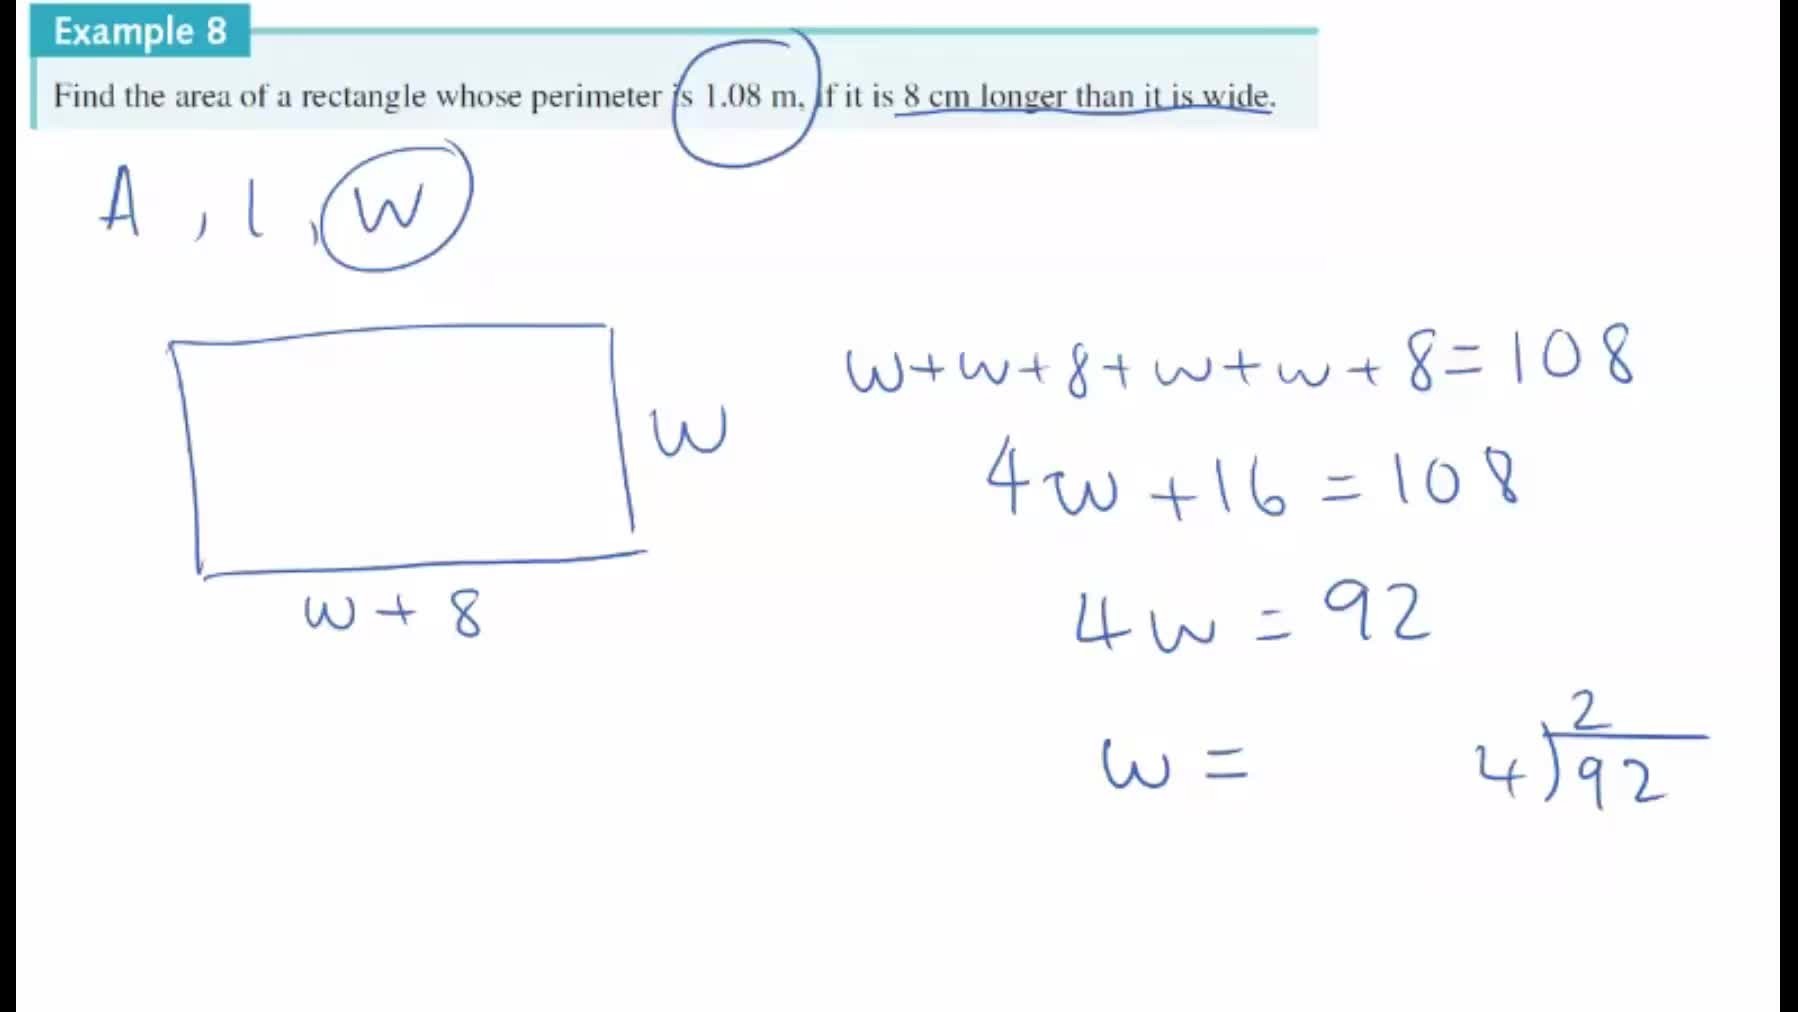 Example 8
Find the area of a rectangle whose perimeter is 1.08 m, if it is 8 cm longer than it is wide.
A , l , w
w
w + 8
w+w+8+w+w+8=108
4w+16=108
4w=92
w=
2
4)92